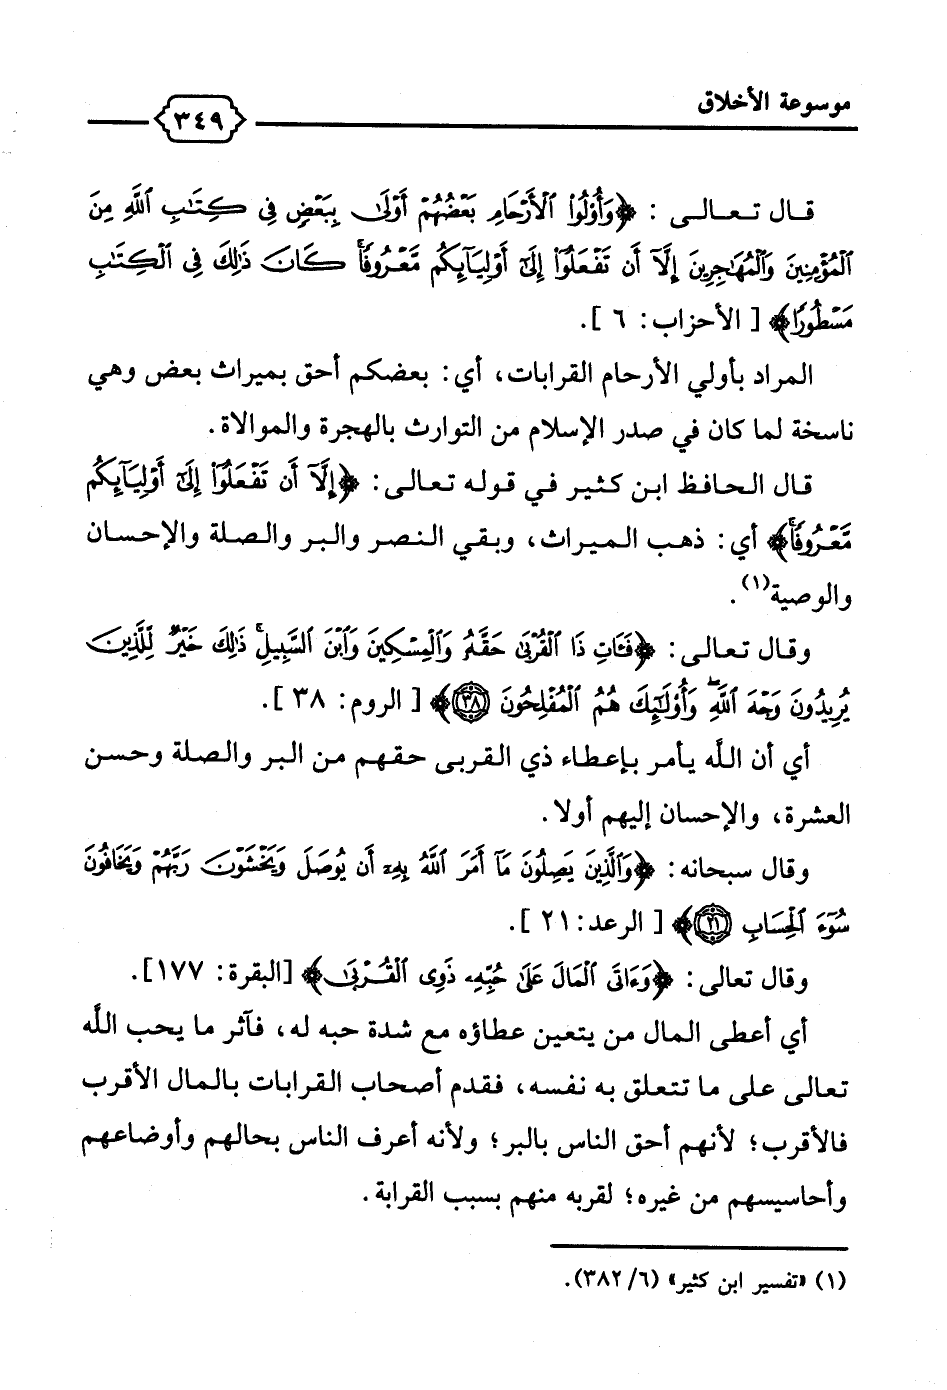 موسوعة الأخلاق
٣٤٩
قال تعالى : ﴿وَأُوْلُواْ ٱلْأَرْحَامِ بَعْضُهُمْ أَوْلَىٰ بِبَعْضٍ فِي كِتَٰبِ ٱللَّهِ مِنَ
ٱلْمُؤْمِنِينَ وَٱلْمُهَٰجِرِينَ إِلَّآ أَن تَفْعَلُوٓاْ إِلَىٰٓ أَوْلِيَآئِكُم مَّعْرُوفًا ۚ كَانَ ذَٰلِكَ فِي ٱلْكِتَٰبِ
مَسْطُورًا﴾ [ الأحزاب: ٦ ].
المراد بأولي الأرحام القرابات، أي: بعضكم أحق بميراث بعض وهي
ناسخة لما كان في صدر الإسلام من التوارث بالهجرة والموالاة.
قال الحافظ ابن كثير في قوله تعالى: ﴿إِلَّآ أَن تَفْعَلُوٓاْ إِلَىٰٓ أَوْلِيَآئِكُم
مَّعْرُوفًا ۚ﴾ أي: ذهب الميراث، وبقي النصر والبر والصلة والإحسان
والوصية(١).
وقال تعالى: ﴿فَـَٔاتِ ذَا ٱلْقُرْبَىٰ حَقَّهُۥ وَٱلْمِسْكِينَ وَٱبْنَ ٱلسَّبِيلِ ۚ ذَٰلِكَ خَيْرٌ لِّلَّذِينَ
يُرِيدُونَ وَجْهَ ٱللَّهِ ۖ وَأُوْلَٰٓئِكَ هُمُ ٱلْمُفْلِحُونَ ٣٨﴾ [ الروم: ٣٨ ].
أي أن اللَّه يأمر بإعطاء ذي القربى حقهم من البر والصلة وحسن
العشرة، والإحسان إليهم أولا.
وقال سبحانه: ﴿وَٱلَّذِينَ يَصِلُونَ مَآ أَمَرَ ٱللَّهُ بِهِۦٓ أَن يُوصَلَ وَيَخْشَوْنَ رَبَّهُمْ وَيَخَافُونَ
سُوٓءَ ٱلْحِسَابِ ٢١﴾ [ الرعد: ٢١ ].
وقال تعالى: ﴿وَءَاتَى ٱلْمَالَ عَلَىٰ حُبِّهِۦ ذَوِي ٱلْقُرْبَىٰ﴾ [البقرة: ١٧٧].
أي أعطى المال من يتعين عطاؤه مع شدة حبه له، فآثر ما يحب اللَّه
تعالى على ما تتعلق به نفسه، فقدم أصحاب القرابات بالمال الأقرب
فالأقرب؛ لأنهم أحق الناس بالبر؛ ولأنه أعرف الناس بحالهم وأوضاعهم
وأحاسيسهم من غيره؛ لقربه منهم بسبب القرابة.
(١) «تفسير ابن كثير» (٦/ ٣٨٢).